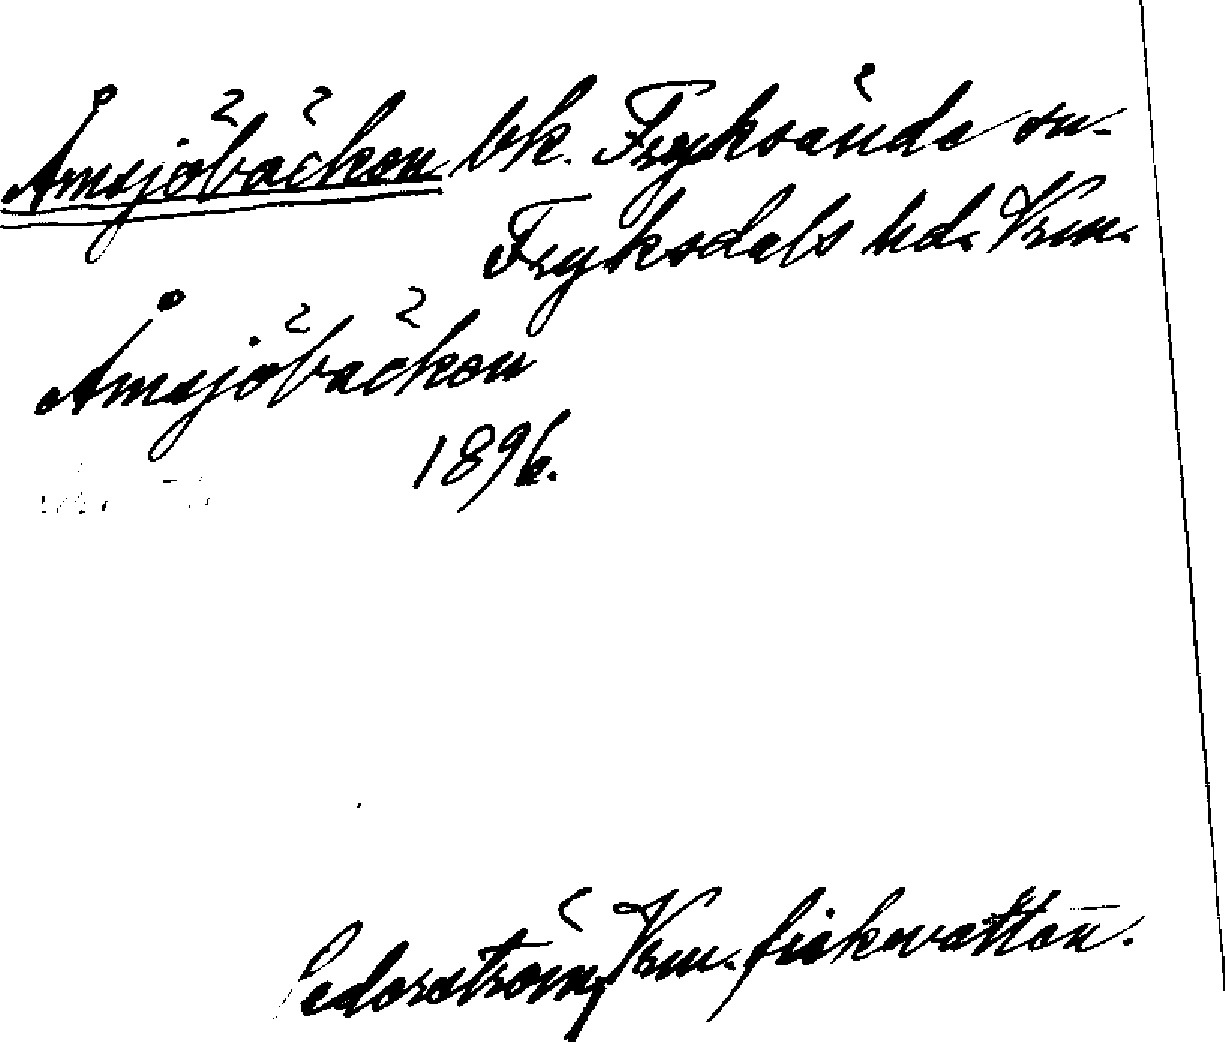 Åmsjöbäcken bk. Fryksände sn.
Fryksdals hd. Vrm.
Åmsjöbäcken
1896.
Cederström, Vrm. fiskevatten.